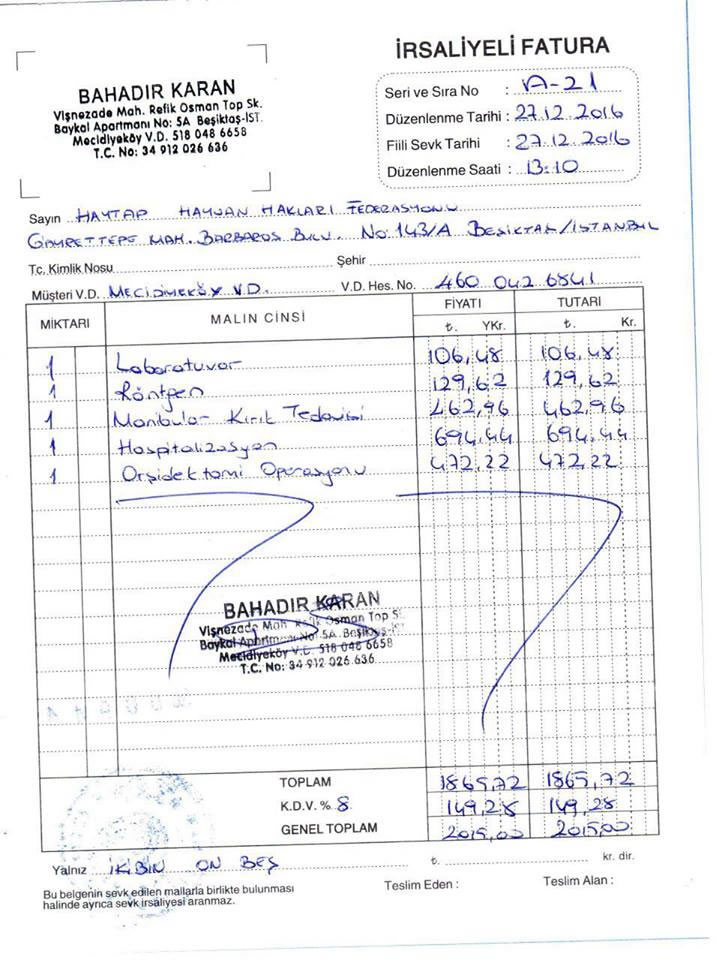 İRSALİYELİ FATURA
BAHADIR KARAN
Vişnezade Mah. Refik Osman Top Sk.
Baykal Apartmanı No: 5A Beşiktaş-İST.
Mecidiyeköy V.D. 518 048 6658
T.C. No: 34 912 026 636
Seri ve Sıra No : A-21
Düzenlenme Tarihi : 27.12.2016
Fiili Sevk Tarihi : 27.12.2016
Düzenlenme Saati : 13:10
Sayın HAYTAP HAYVAN HAKLARI FEDERASYONU
GAYRETTEPE MAH. BARBAROS BULV. No 143/A BEŞİKTAŞ/İSTANBUL
T.c. Kimlik Nosu Şehir
Müşteri V.D. MECİDİYEKÖY V.D. V.D. Hes. No. 460 042 6841
MİKTARI MALIN CİNSİ FİYATI TUTARI
₺. YKr. ₺. Kr.
1 Laboratuvar 106,48 106,48
1 Röntgen 129,62 129,62
1 Manibular Kırık Tedavisi 462,96 462,96
1 Hospitalizasyon 694,44 694,44
1 Orşidektomi Operasyonu 472,22 472,22
BAHADIR KARAN
Vişnezade Mah. Refik Osman Top S
Baykal Apartmanı No: 5A Beşiktaş-İST
Mecidiyeköy V.D. 518 048 6658
T.C. No: 34 912 026 636
TOPLAM 1865,72 1865,72
K.D.V. % 8 149,28 149,28
GENEL TOPLAM 2015,00 2015,00
Yalnız İKİBİN ON BEŞ ₺. kr. dir.
Bu belgenin sevk edilen mallarla birlikte bulunması
halinde ayrıca sevk irsaliyesi aranmaz.
Teslim Eden : Teslim Alan :